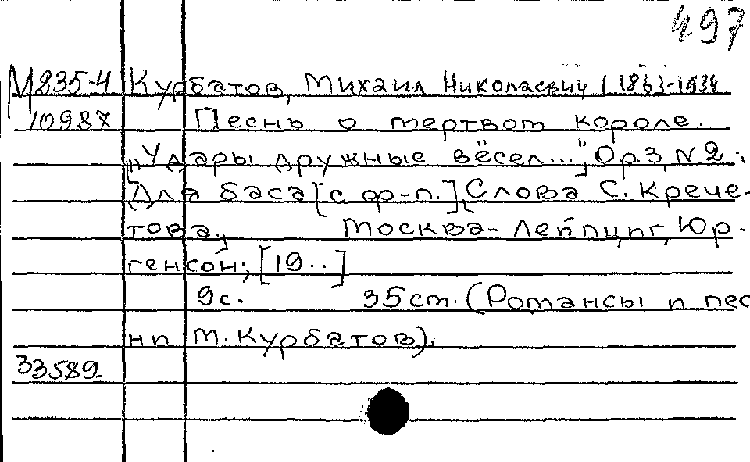 497
М835-4 Курбатов, Михаил Николаевич (1863-1934
10987 Песнь о мертвом короле.
„Удары дружные вёсел...", Ор.3, N2:
Для баса [с ф-п.], Слова С. Крече-
това, Москва-Лейпциг, Юр-
генсон; [19..]
9с. 35ст. (Романсы и пес
ни М. Курбатов).
33589